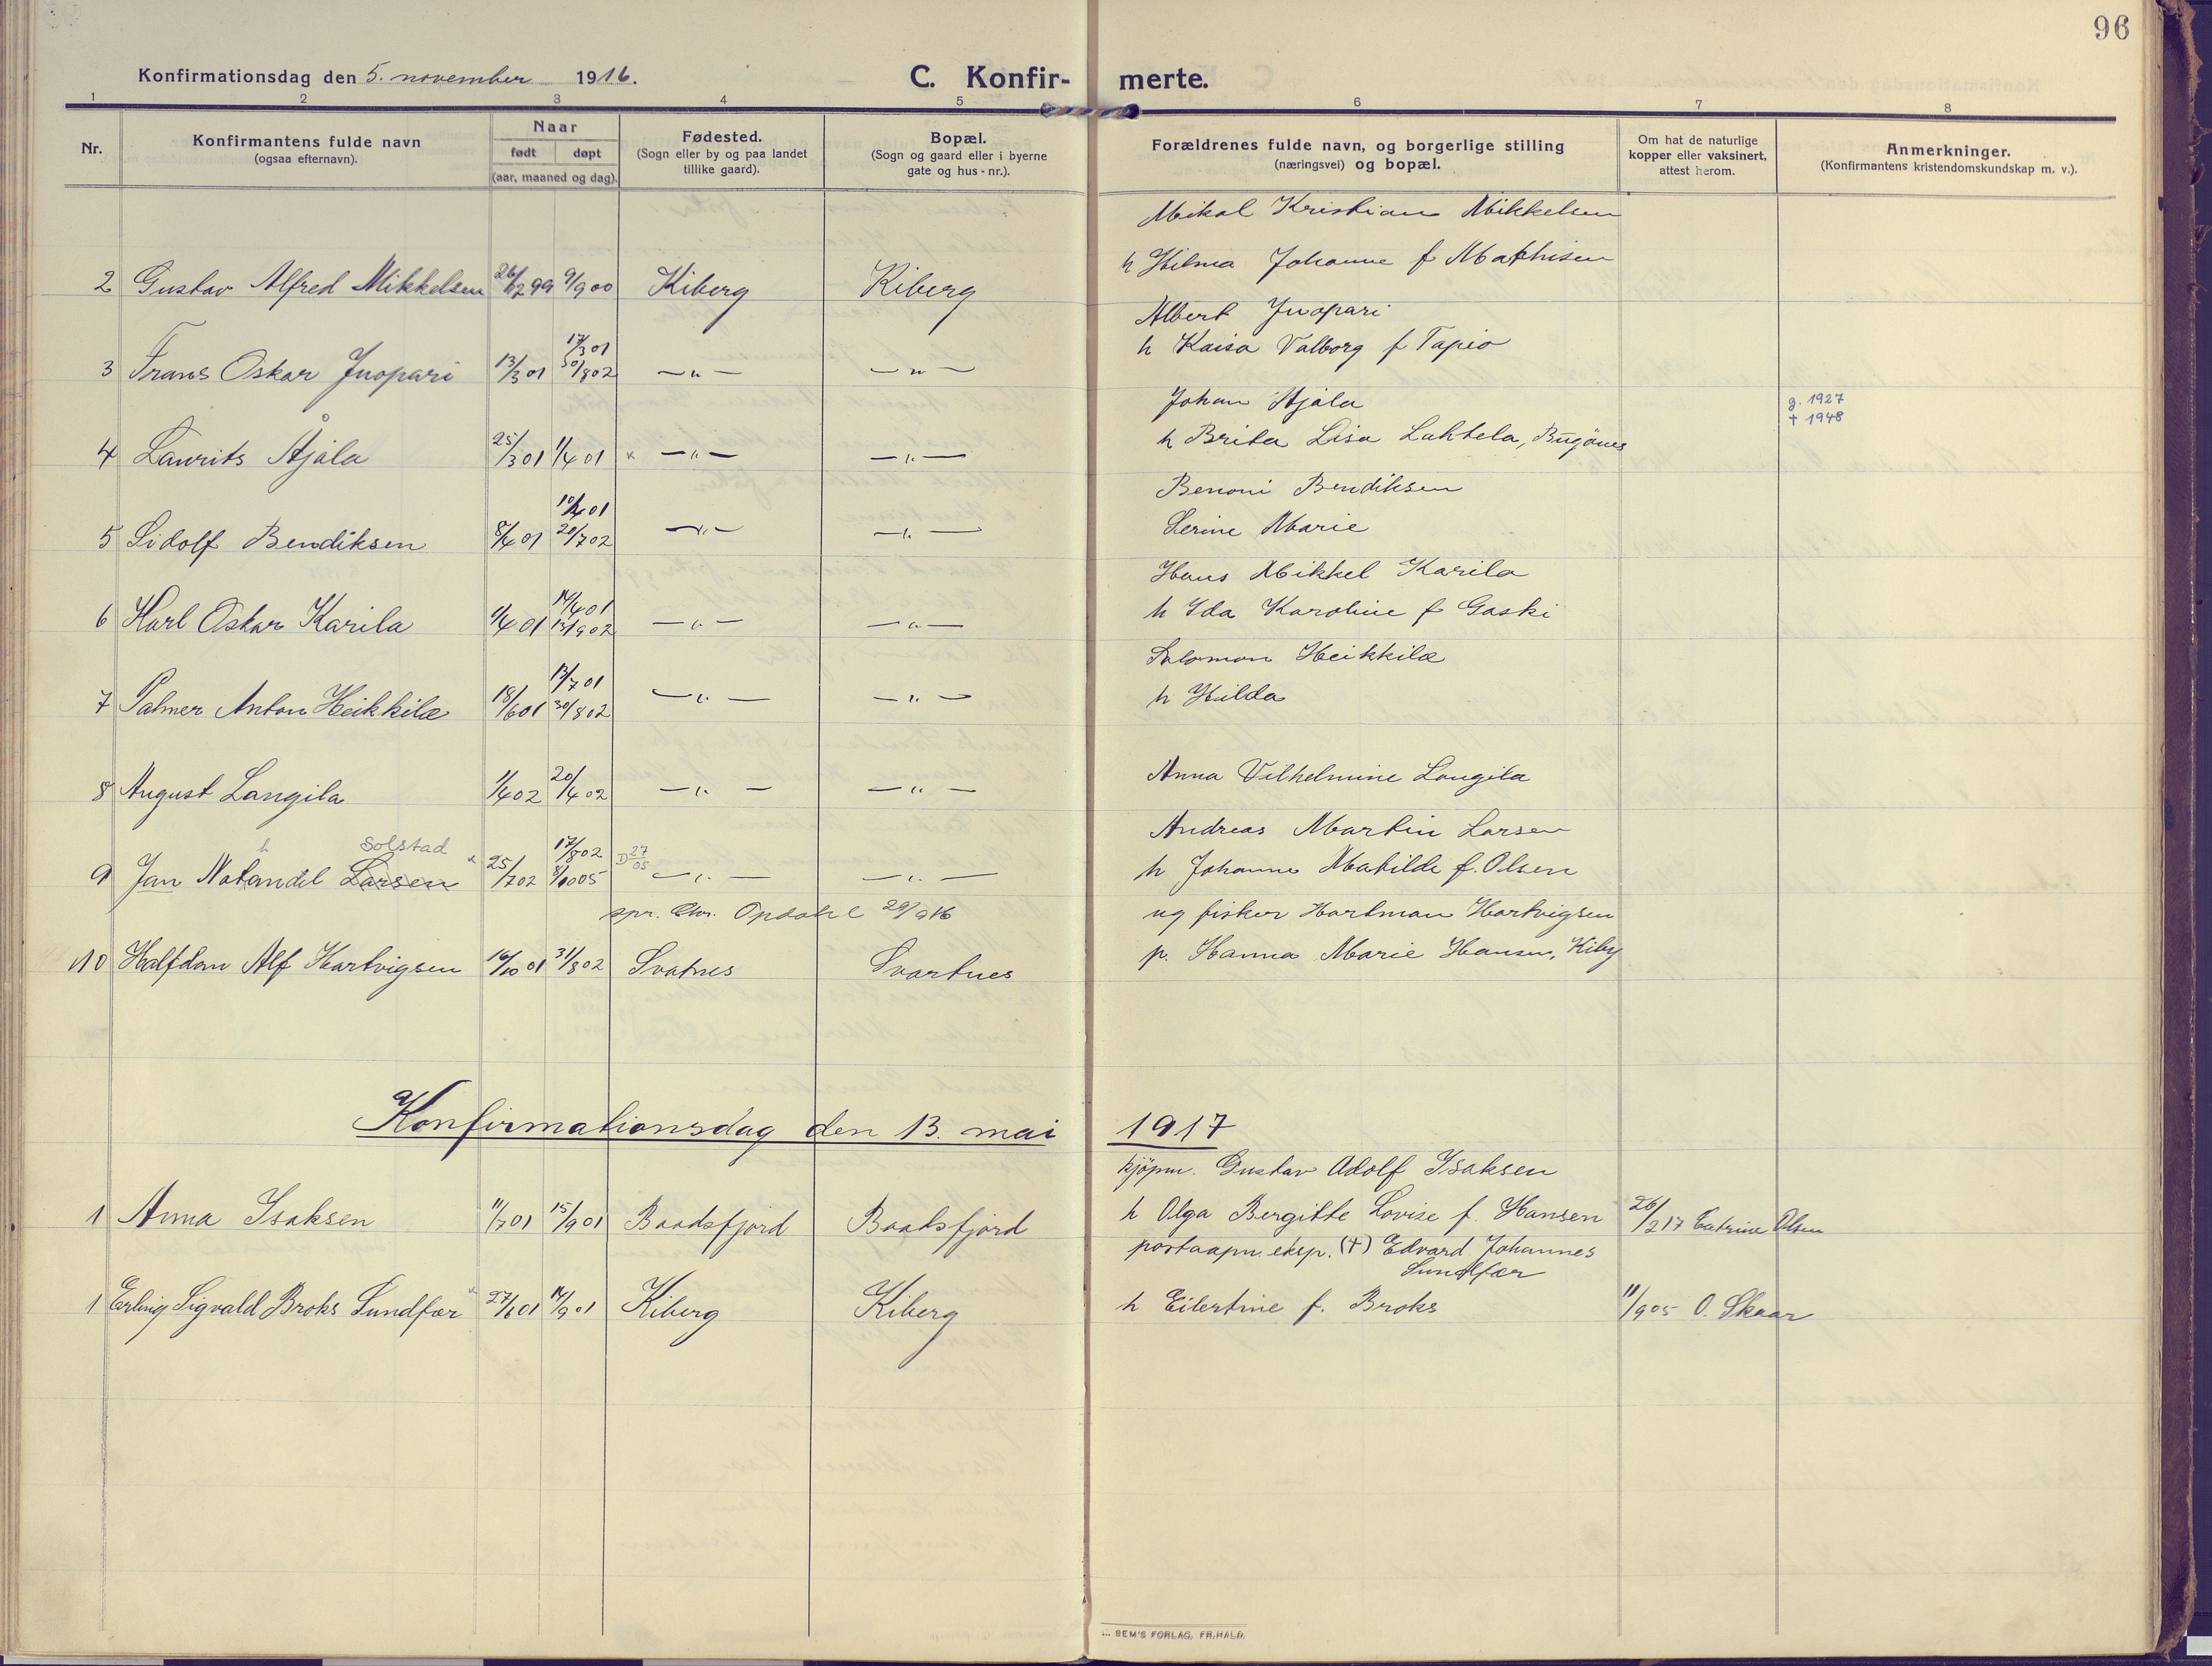 96
Konfirmationsdag den 5. november 1916.
C. Konfir- merte.
1 2 3 4 5 6 7 8
Nr.
Konfirmantens fulde navn
(ogsaa efternavn).
Naar
født døpt
(aar, maaned og dag).
Fødested.
(Sogn eller by og paa landet
tillike gaard).
Bopæl.
(Sogn og gaard eller i byerne
gate og hus-nr.).
Forældrenes fulde navn, og borgerlige stilling
(næringsvei) og bopæl.
Om hat de naturlige
kopper eller vaksinert,
attest herom.
Anmerkninger.
(Konfirmantens kristendomskundskap m. v.).
Mikal Kristian Mikkelsen
h Hilma Johanne f Mathisen
2 Gustav Alfred Mikkelsen 26/12 99 9/9 00 Kiberg Kiberg
Albert Juopari
h Kaisa Valborg f Tapio
17/3 01
3 Frans Oskar Juopari 13/3 01 30/8 02 — " — — " —
Johan Ajala
g. 1927
† 1948
h Brita Lisa Lahtela, Bugönes
4 Laurits Åjala 25/3 01 1/4 01 x — " — — " —
Benoni Bendiksen
10/4 01
Serine Marie
5 Sidolf Bendiksen 8/4 01 20/7 02 — " — — " —
Hans Mikkel Karila
14/4 01
h Ida Karoline f Gaski
6 Karl Oskar Karila 1/4 01 13/9 02 — " — — " —
Salomon Heikkilæ
13/7 01
h Hilda
7 Palmer Anton Heikkilæ 18/6 01 30/8 02 — " — — " —
Anna Vilhelmine Langila
8 August Langila 1/4 02 20/4 02 — " — — " —
Andreas Martin Larsen
h Solstad 17/8 02 D 27/05
h Johanne Matilde f. Olsen
9 Jan Natandil Larsen x 25/7 02 8/10 05 — " — — " —
spr. Chr. Opdahl 29/9 16
ug fisker Hartman Hartvigsen
p. Hanna Marie Hansen, Kibg
10 Halfdan Alf Hartvigsen 16/10 01 31/8 02 Svatnes Svartnes
Konfirmationsdag den 13. mai 1917
kjöpm. Gustav Adolf Isaksen
h Olga Bergitte Lovise f. Hansen
1 Anna Isaksen 11/7 01 15/9 01 Baadsfjord Baadsfjord 26/2 17 Catrine Olsen
postaapn. eksp. (†) Edvard Johannes
Sundfær
1 Erling Sigvald Broks Sundfær x 27/6 01 14/9 01 Kiberg Kiberg h Eilertine f. Broks 11/9 05 O. Skaar
SEM'S FORLAG, FR. HALD.